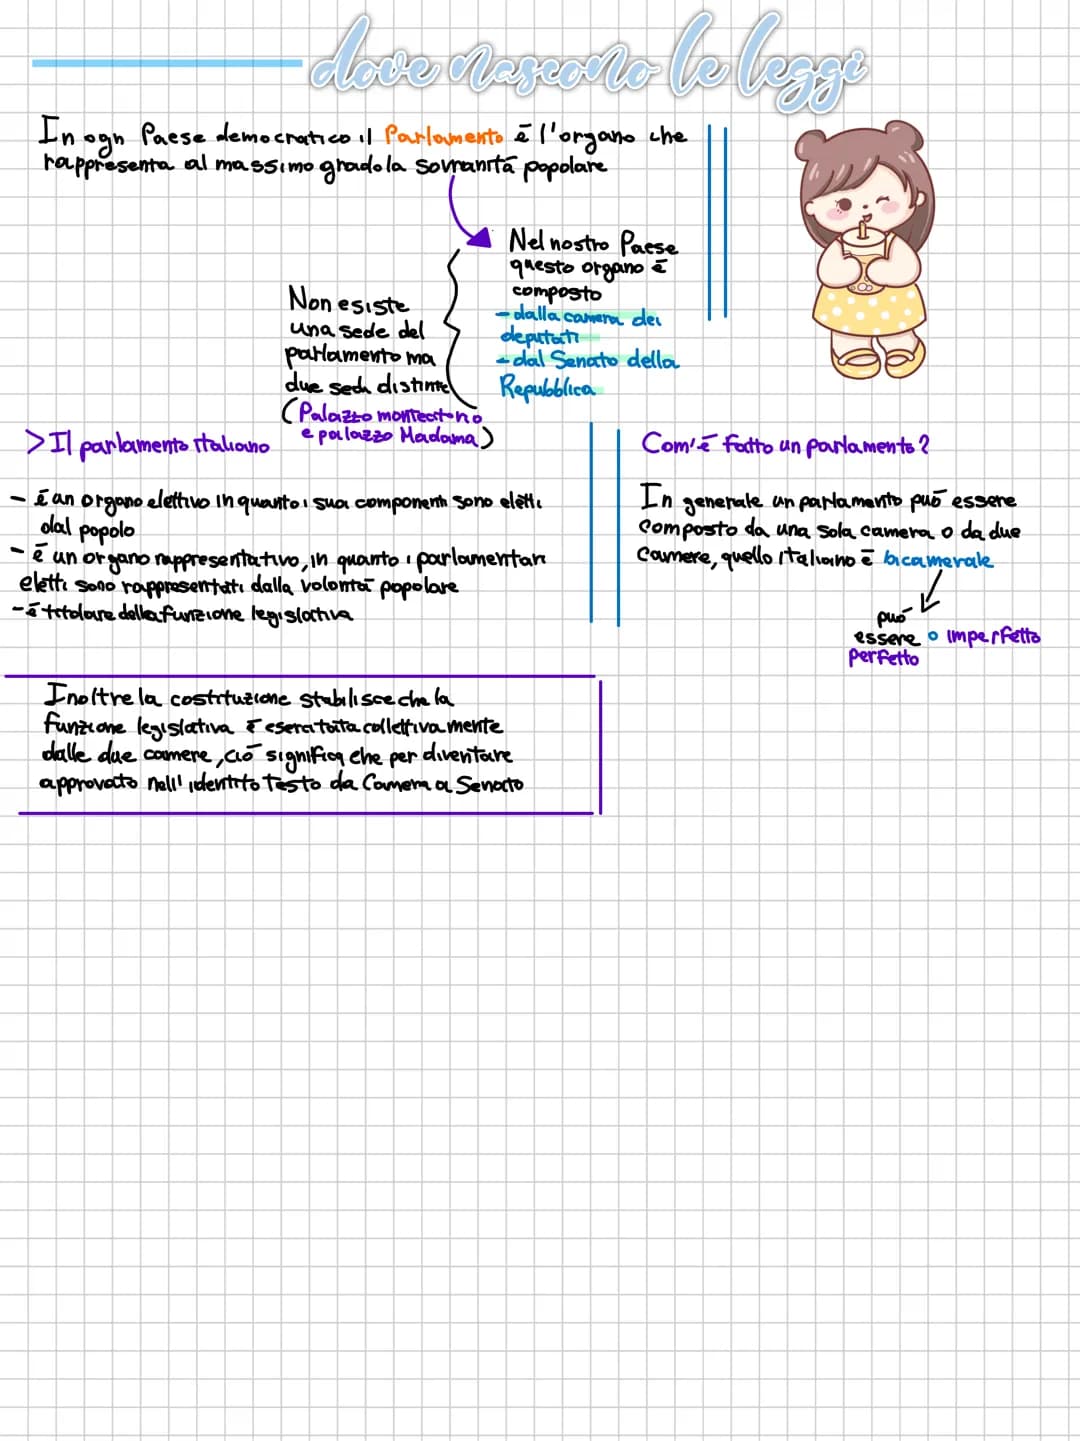 dove nascono le leggi
In ogn Paese democratico il Parlamento è l'organo che
rappresenta al massimo grado la sovranità popolare
Nel nostro Paese
questo organo è
composto
- dalla camera dei
deputati
- dal Senato della
Repubblica
Non esiste
una sede del
parlamento ma
due sedi distinte
(Palazzo montecitorio
e palazzo Madama)
>Il parlamento italiano
- è an organo elettivo in quanto i suoi componenti sono eletti
dal popolo
- è un organo rappresentativo, in quanto i parlamentari
eletti sono rappresentati dalla volontà popolare
- è titolare della funzione legislativa
Com'è fatto un parlamento?
In generale un parlamento può essere
composto da una sola camera o da due
camere, quello italiano è bicamerale
può
essere o imperfetto
perfetto
Inoltre la costituzione stabilisce che la
funzione legislativa è esercitata collettivamente
dalle due camere, ciò significa che per diventare
approvato nell' identito testo da Camera a Senato